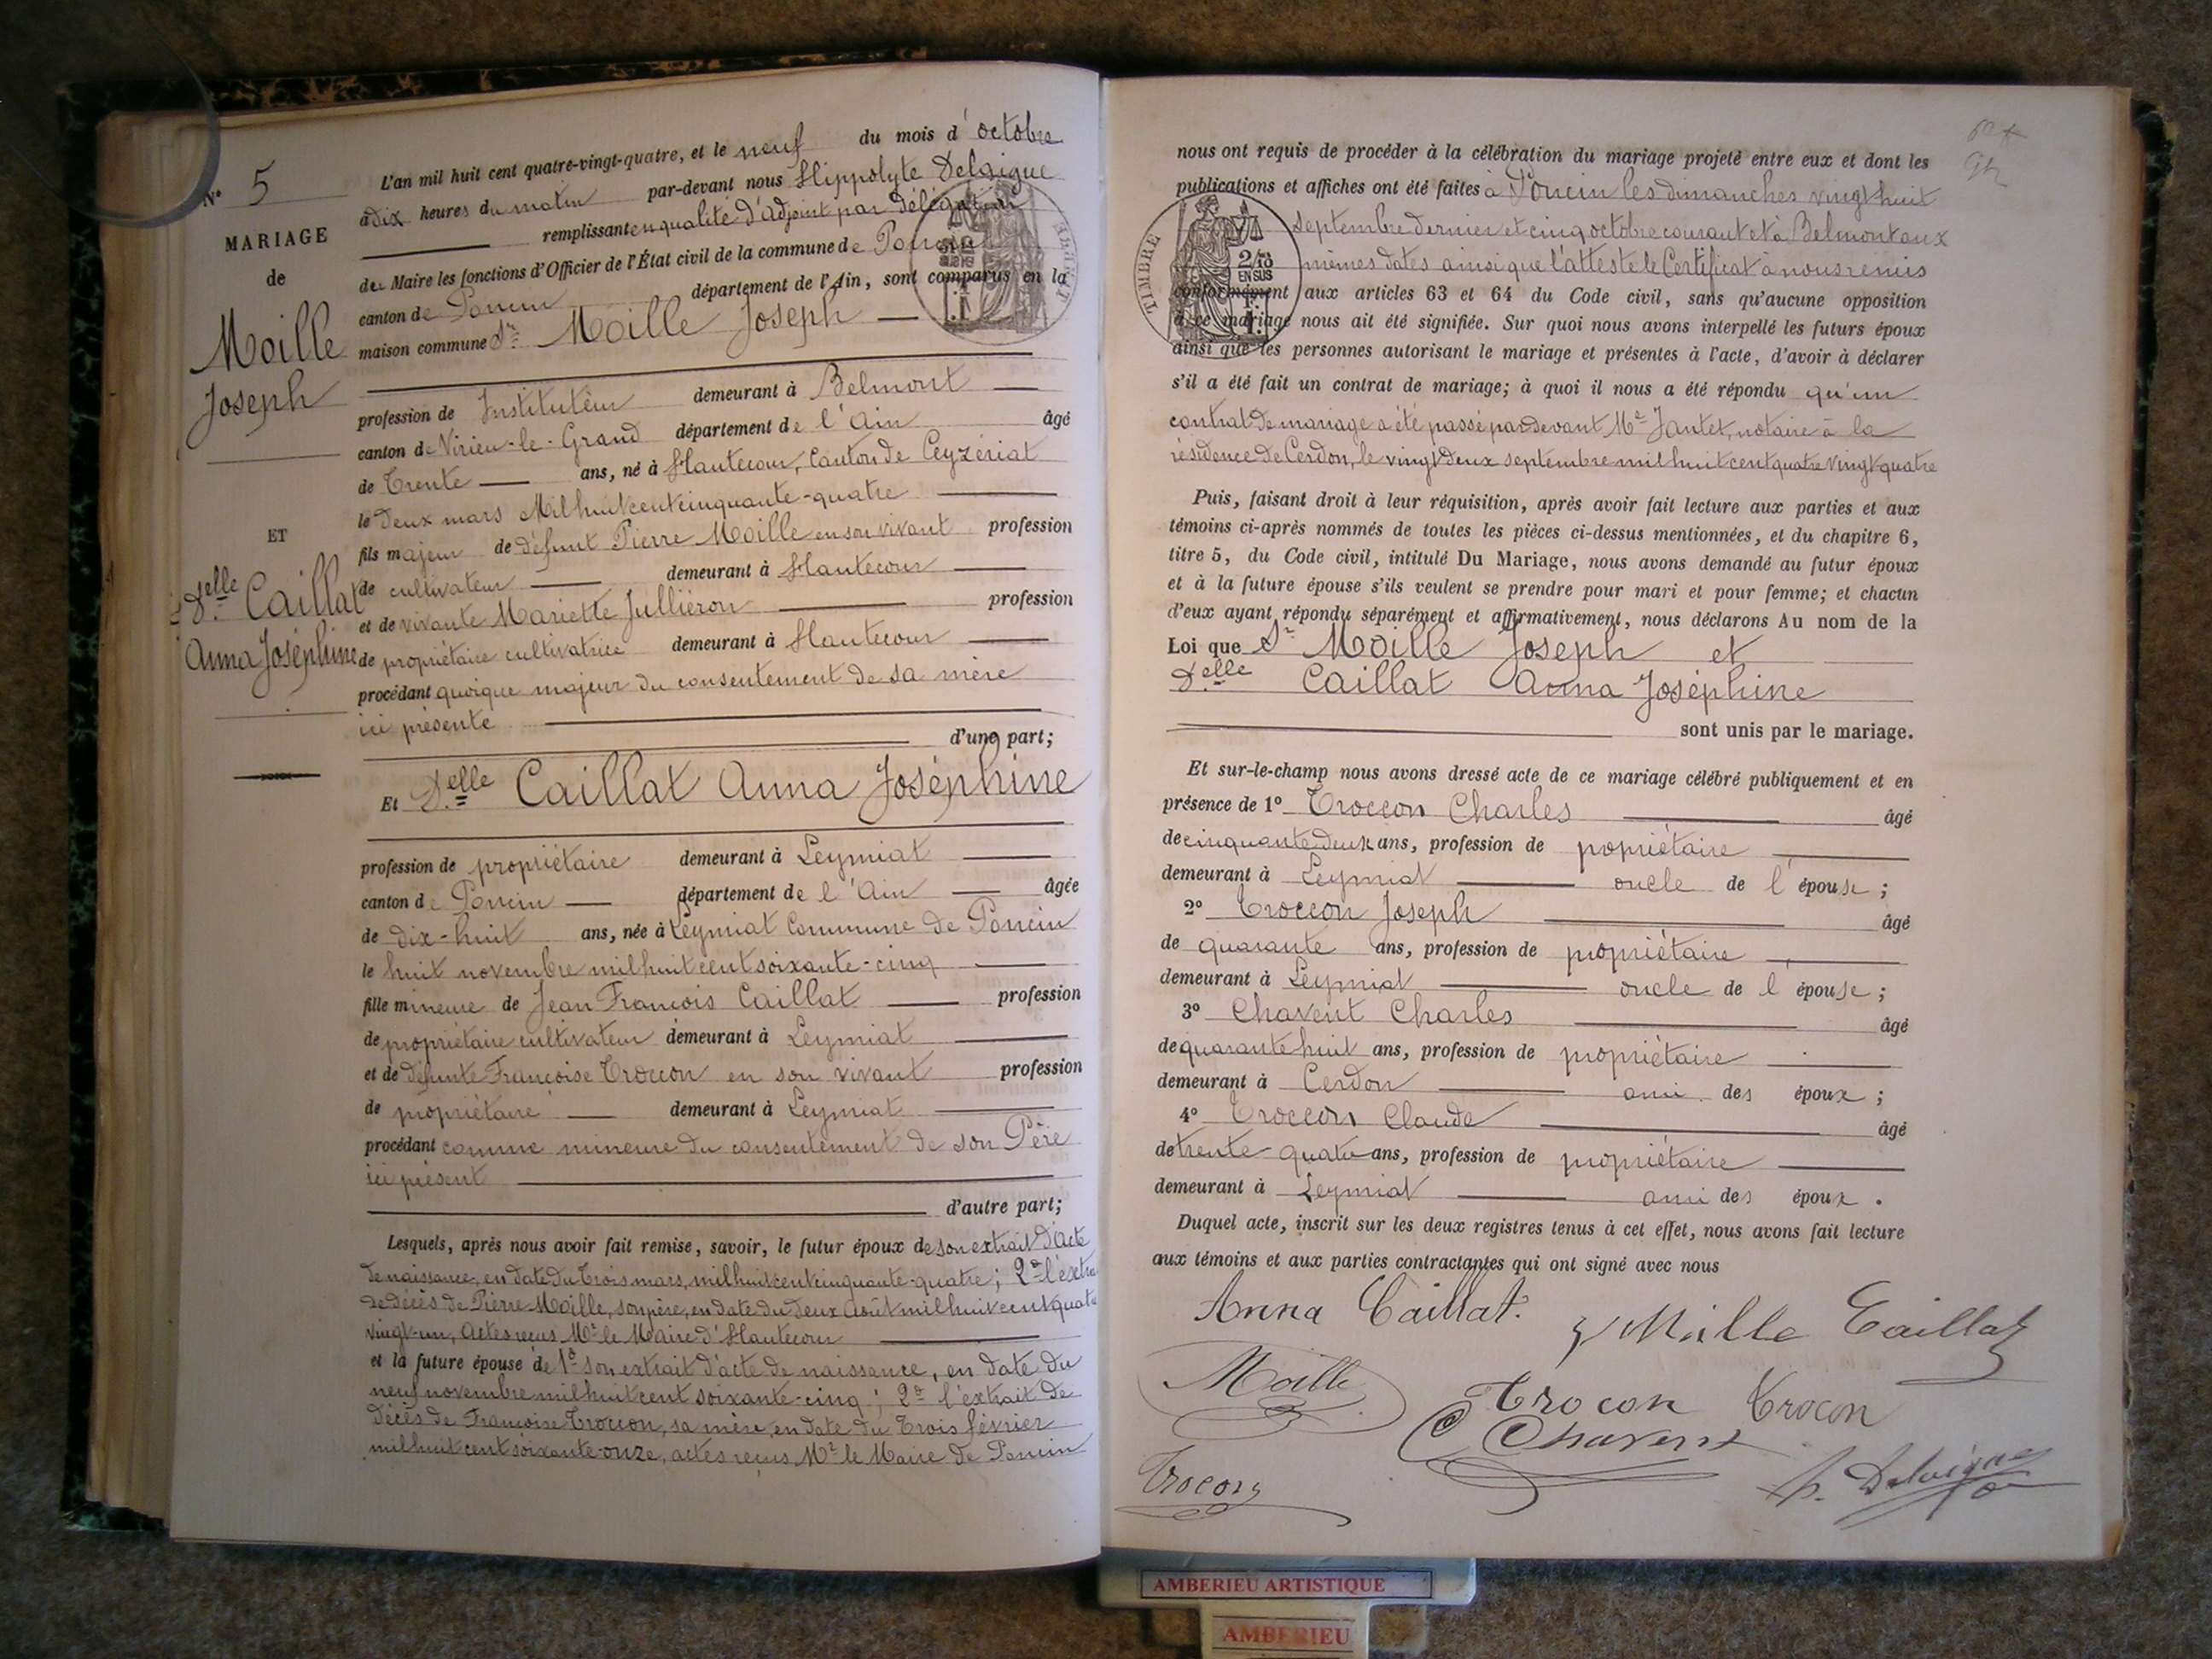 N° 5
MARIAGE
de
Moille
Joseph
ET
Delle Caillat
Anna Joséphine
L'an mil huit cent quatre-vingt-quatre, et le neuf du mois d'octobre
à dix heures du matin par-devant nous Hippolyte Delaigue
remplissant en qualité d'adjoint par délégation
du Maire les fonctions d'Officier de l'État civil de la commune de Poncin
canton de Poncin département de l'Ain, sont comparus en la
maison commune Sr Moille Joseph
profession de Instituteur demeurant à Belmont
canton de Virieu-le-Grand département de l'Ain âgé
de Trente ans, né à Hautecour, Canton de Ceyzériat
le Deux mars Mil huit cent cinquante-quatre
fils majeur de défunt Pierre Moille en son vivant profession
de cultivateur demeurant à Hautecour
et de vivante Mariette Julliéron profession
de propriétaire cultivatrice demeurant à Hautecour
procédant quoique majeur du consentement de sa mère
ici présente
d'une part;
Et Delle Caillat Anna Joséphine
profession de propriétaire demeurant à Leymiat
canton de Poncin département de l'Ain âgée
de dix-huit ans, née à Leymiat Commune de Poncin
le huit novembre mil huit cent soixante-cinq
fille mineure de Jean François Caillat profession
de propriétaire cultivateur demeurant à Leymiat
et de défunte Françoise Troccon en son vivant profession
de propriétaire demeurant à Leymiat
procédant comme mineure du consentement de son Père
ici présent
d'autre part;
Lesquels, après nous avoir fait remise, savoir, le futur époux de son extrait d'acte
de naissance, en date du trois mars, mil huit cent cinquante-quatre; 2° l'extra
de décès de Pierre Moille, son père, en date du deux août mil huit cent quatre
vingt-un, actes reçus Mr le Maire d'Hautecour
et la future épouse de 1° son extrait d'acte de naissance, en date du
neuf novembre mil huit cent soixante-cinq; 2° l'extrait de
décès de Françoise Troccon, sa mère, en date du Trois février
mil huit cent soixante-onze, actes reçus Mr le Maire de Poncin
nous ont requis de procéder à la célébration du mariage projeté entre eux et dont les
publications et affiches ont été faites à Poncin les dimanches vingt huit
septembre dernier et cinq octobre courant et à Belmont aux
mêmes dates ainsi que l'atteste le Certificat à nous remis
conformément aux articles 63 et 64 du Code civil, sans qu'aucune opposition
à ce mariage nous ait été signifiée. Sur quoi nous avons interpellé les futurs époux
ainsi que les personnes autorisant le mariage et présentes à l'acte, d'avoir à déclarer
s'il a été fait un contrat de mariage; à quoi il nous a été répondu qu'un
contrat de mariage a été passé par devant Me Jantet, notaire à la
résidence de Cerdon, le vingt deux septembre mil huit cent quatre vingt quatre
Puis, faisant droit à leur réquisition, après avoir fait lecture aux parties et aux
témoins ci-après nommés de toutes les pièces ci-dessus mentionnées, et du chapitre 6,
titre 5, du Code civil, intitulé Du Mariage, nous avons demandé au futur époux
et à la future épouse s'ils veulent se prendre pour mari et pour femme; et chacun
d'eux ayant répondu séparément et affirmativement, nous déclarons Au nom de la
Loi que Sr Moille Joseph et
Delle Caillat Anna Joséphine
sont unis par le mariage.
Et sur-le-champ nous avons dressé acte de ce mariage célébré publiquement et en
présence de 1° Troccon Charles âgé
de cinquante deux ans, profession de popriétaire
demeurant à Leymiat oncle de l'épouse;
2° Troccon Joseph âgé
de quarante ans, profession de propriétaire
demeurant à Leymiat oncle de l'épouse;
3° Chavent Charles âgé
de quarante huit ans, profession de propriétaire
demeurant à Cerdon ami des époux;
4° Troccon Claude âgé
de trente-quatre ans, profession de propriétaire
demeurant à Leymiat ami des époux.
Duquel acte, inscrit sur les deux registres tenus à cet effet, nous avons fait lecture
aux témoins et aux parties contractantes qui ont signé avec nous
Anna Caillat. Moille Caillat
Moille Trocon Trocon
C Chavent
Trocon h. Delaigue
TIMBRE
2/10
EN SUS
AMBERIEU ARTISTIQUE
AMBERIEU